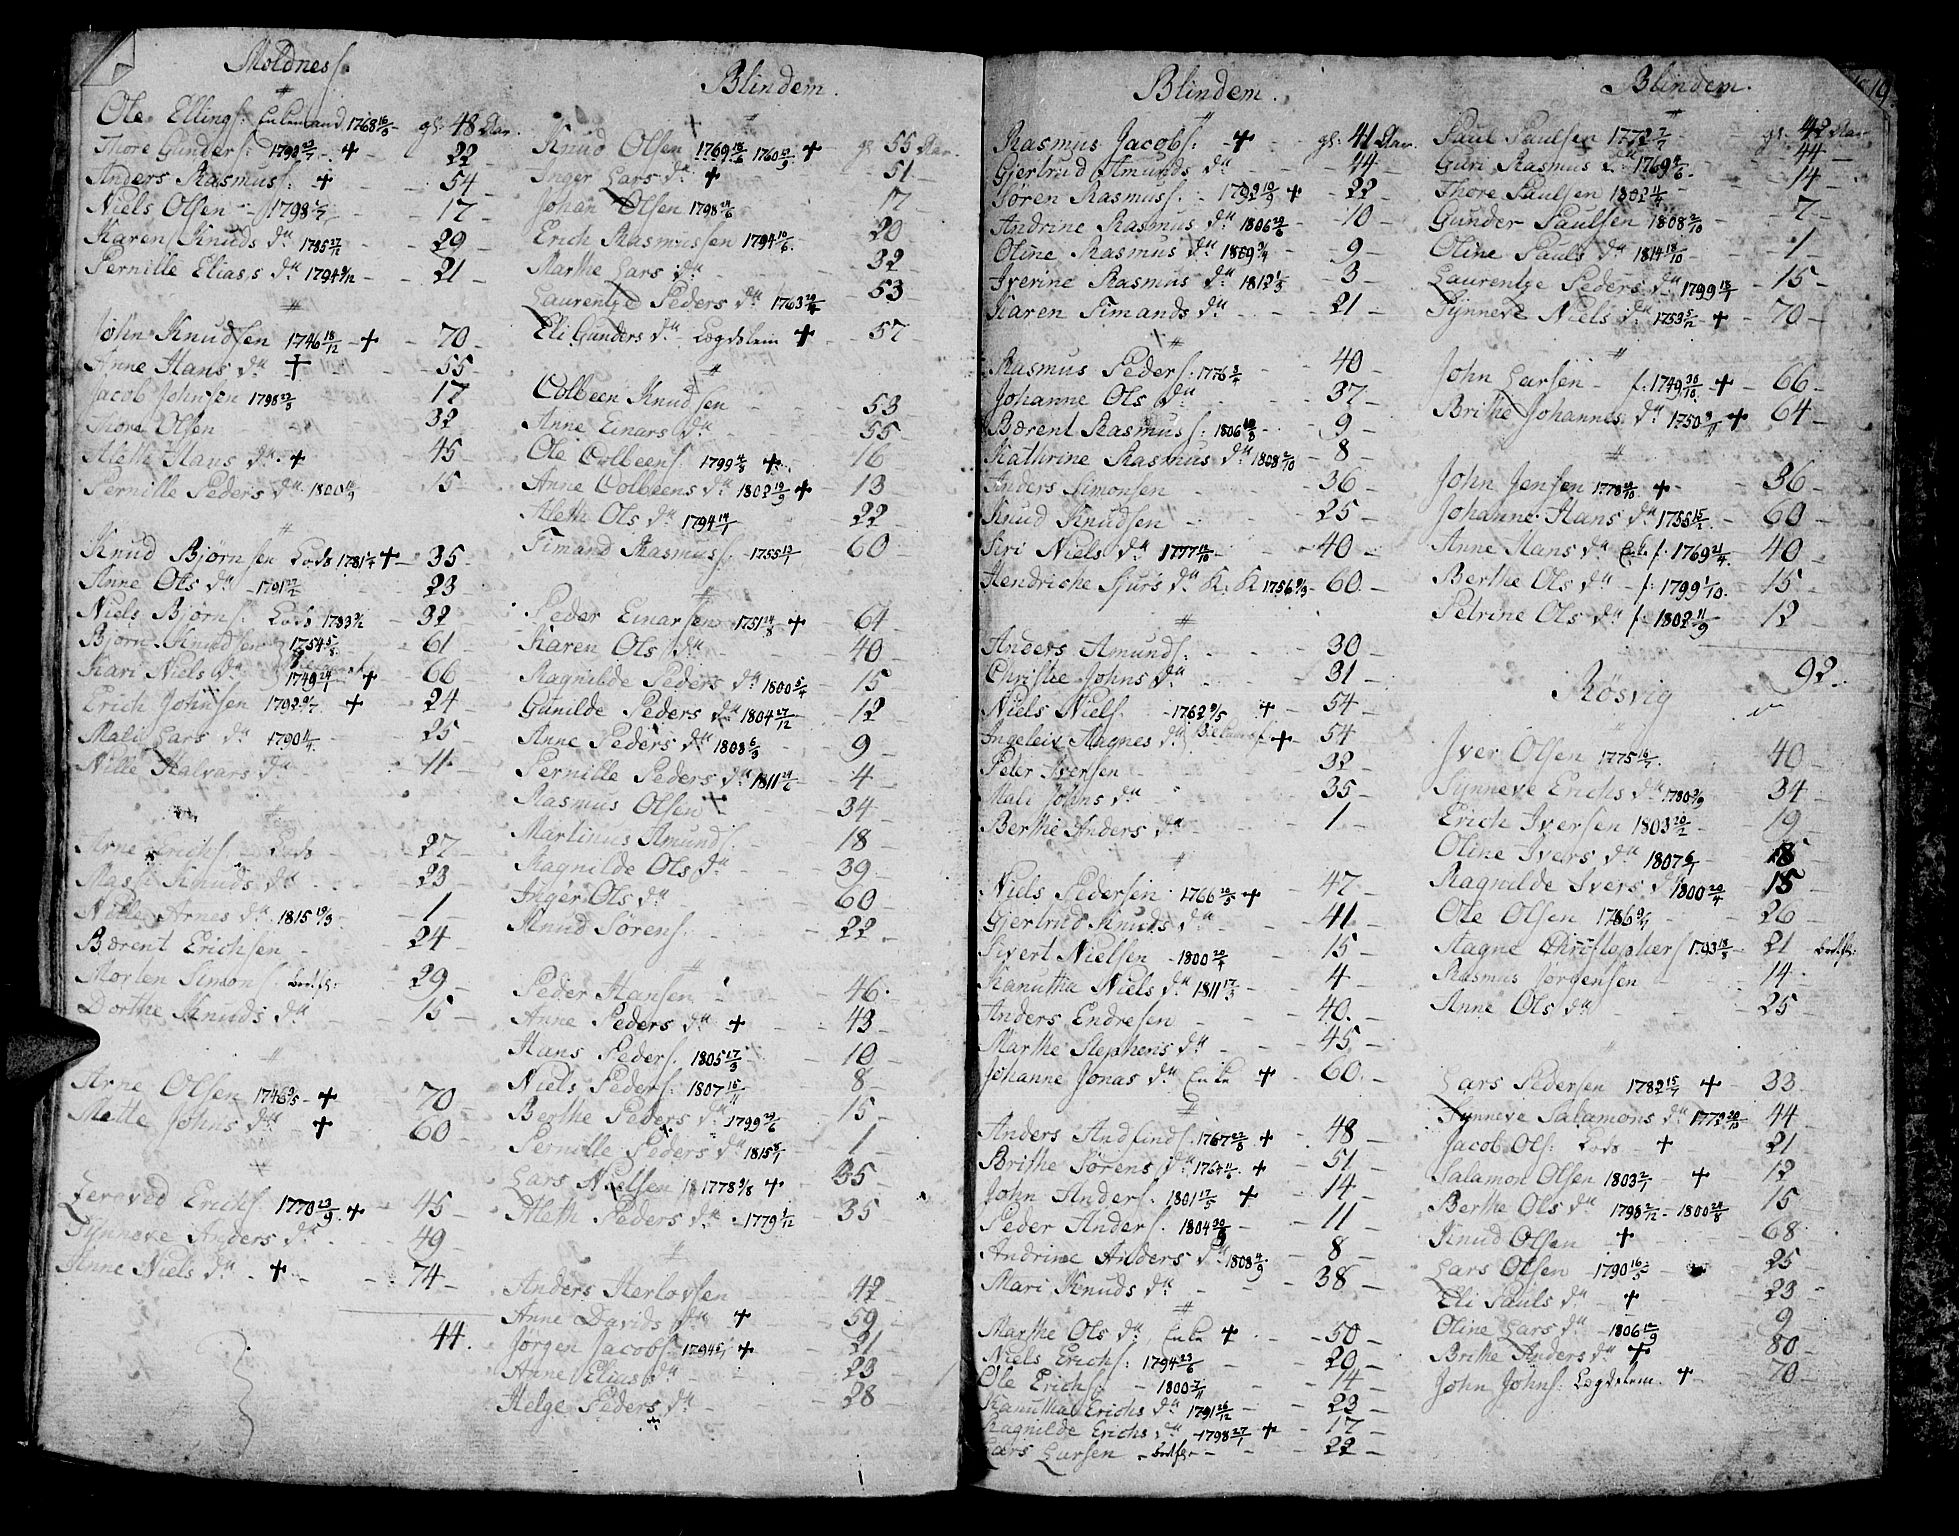 Moldness.
Ole Ellings: Enkemand 1768 16/3 - gl: 48 Aar.
Thore Gunders: 1792 23/7 - + - 22 -
Anders Rasmuss: + - 54 -
Niels Olsen - 1798 - 17 -
Karen Knuds d: 1785 27/12 - 29 -
Pernille Elias,s d: 1794 9/12 - 21 -
#
John Knudsen 1746 18/12 - + - 70 -
Anne Hans d: + - 55 -
Jacob Johnsen 1798 22/3 17 -
Thore Olsen 32
Aleth Hans d: + - 45 -
Pernille Peders d: 1800 15 -
#
Knud Bjørnsen Lods 1781 + - 35 -
Anne Ols d: - 1791 - 23 -
Niels Bjørns: Lods 1783 - 32 -
Bjørn Knudsen 1754 5/8 - 61 -
Kari Niels d: 1749 24/1 + - 66 -
Erich Johnsen 1792 + - 24 -
Mali Lars d: 1790 - 25 -
Nille Halvars d: - 11 -
#
Arne Erichs - Lods - 27 -
Knuds d: - 23 -
Nille Arnes d: 1815 19/3 - 1 -
Bærent Erichsen - 24 -
Morten Simons: - 29 -
Dorthe Knuds d: - 15 -
#
Arne Olsen 1746 - + - 70 -
Mette Johns d: - + - 60 -
#
Zeroved Erichs: 1770 23/9 + - 45 -
Synneve Anders d: - 49 -
Anne Niels d: - + - 74 -
44.
Blindem.
#
Knud Olsen 1769 18/6 1760 + gl 55 Aar.
Inger Lars d: + - 51 -
Johan Olsen 1798 24/6 17 -
Erich Rasmussen 1794 10/6 - 20
Marthe Lars d: - 32
Laurentze Peders d: 1763 - 53 -
Eli Gunders d: Lægdslem + - 57 -
#
Colbeen Knudsen - 53 -
Anne Einars d: - 55 -
Ole Colbeens: 1799 4/8 + - 16 -
Anne Colbeens d: 1802 19/9 + 13 -
Aleth Ols d: 1794 14/7 22 -
Timand Rasmuss: - 1755 60 -
#
Peder Einarsen 1751 14/8 + - 64 -
Karen Ols d: - 40 -
Ragnilde Peders d: 1800 5/4 - 15 -
Gunilde Peders d: 1804 27/12 - 12 -
Anne Peders d: 1808 6/3 - 9 -
Pernille Peders d: 1811 - 4 -
Rasmus Olsen - 34 -
Martinus Amunds: 18 -
Ragnilde Ols d: - 39 -
Inger Ols d: - 60 -
Knud Sørens: - 22 -
#
Peder Hansen - 46 -
Anne Peders d: + - 43 -
Hans Peders: 1805 17/3 - 10 -
Niels Peders: 1807 15/11 - 8 -
Berthe Peders d: 1799 29/6 - 15 -
Pernille Peders d: 1815 - 1 -
Lars Nielsen 1778 + - 35 -
Aleth Peders d: - 1779 1/12 - 35 -
#
Anders Herlovsen - 42 -
Anne Davids d: + - 59 -
Jørgen Jacobs: 1794 + 21 -
Anne Elias d: - 23 -
Helge Peders d: - 28 -
Blindem.
#
Rasmus Jacobs: + - gl: 41 Aar.
Gjertrud Amunds d: - 44 -
Søren Rasmuss: - 1792 10/9 + - 22 -
Andrine Rasmus d: 1806 - 10 -
Oline Rasmus d: 1809 9/4 - 9 -
Iverine Rasmus d: 1812 1/3 - 3 -
Karen Timands d: - 21 -
#
Rasmus Peders: 1776 3/4 - 40
Johanne Ols d: - 37 -
Bærent Rasmuss: 1806 - 9 -
Kathrine Rasmus d: 1808 2/10 - 8 -
Anders Simonsen - 36 -
Knud Knudsen - 25 -
Siri Niels d: 1777 12/10 - 40 -
Hendriche Sjurs d: 1756 - 60 -
#
Anders Amunds: - 30 -
Christie Johns d: - 31 -
Niels Niels: - 1762 9/5 + - 54 -
Ingeleiv Aagnes d: + - 54
Peter Iversen - 32 -
Mali Johns d: - 35 -
Berthe Anders d: - 1 -
#
Niels Pedersen 1766 20/5 + - 47 -
Gjertrud Knuds d: - 41 -
Sivert Nielsen - 1800 20/4 - 15 -
Kanutha Niels d: 1811 17/3 - 4 -
Anders Endresen - 40 -
Marthe Stephens d: - 45 -
Johanne Jonas d: Enke + - 60 -
#
Anders 1767 22/3 + - 48 -
Brithe Sørens d: 1764 11/6 + - 51 -
John Anders: 1801 17/5 + - 14 -
Peder Anders: 1804 - 11 -
Andrine Anders d: 1808 4/9 - 8 -
Mari Knuds d: - 38 -
#
Marthe Ols d: Enke + - 50 -
Niels Erichs: 1794 23/6 - 20 -
Ole Erichs: - 1800 2/11 - 14 -
Kanutha Erichs d: 1791 26/12 - 23 -
Ragnilde Erichs d: - 1798 27/1 + - 17 -
Lars Larsen - 22 -
Blindem. 19.
#
Paul Paulsen 1772 7/7 gl: 42 Aar
Guri Rasmus d: 1769 4/6 - 44 -
Thore Paulsen 1802 11/4 - 14 -
Gunder Paulsen 1808 2/10 - 7 -
Oline Pauls d: 1814 18/10 - 1 -
Laurentze Peders d: 1799 18/7 - 15 -
Synneve Niels d: 1753 5/12 - + - 70 -
#
John Larsen - f: 1749 30/10 + - 66 -
Brithe Johannes d: 1750 + - 64 -
#
John Jensen 1778 + - 36 -
Johanne Hans d: 1755 15/2 - 60 -
Anne Hans d: Enk. f: 1769 21/4 - 40 -
Berthe Ols d: - f: 1799 1/10 - 15 -
Petrine Ols d: f: 1802 11/9 - 12 -
92.
Røsvig
Iver Olsen 1775 16/7 40 -
Synneve Erichs d: 1780 3/9 - 34 -
Erich Iversen 1803 20/2 - 19 -
Oline Ivers d: 1807 - 18 -
Ragnilde Ivers d: 1800 20/4 - 15
Ole Olsen 1786 - 26 -
Aagne Christophers 1793 18/8 - 21
Rasmus Jørgensen - 14 -
Anne Ols d: - 25 -
Lars Pedersen 1782 15/7 + - 33 -
Synneve Salamons d: 1772 20/10 - 44 -
Jacob Ols: Lods - + - 21
Salamon Olsen 1803 2/7 - + - 12
Berthe Ols d: 1798 2/12 - 1800 24/8 15 -
Knud Olsen - + - 68 -
Lars Olsen - 1790 16/5 - 25 -
Eli Pauls d: - + - 23 -
Oline Lars d: - 1806 14/9 - 9 -
Brithe Anders d: + - 80 -
John Johns: Lægdslem + - 70 -